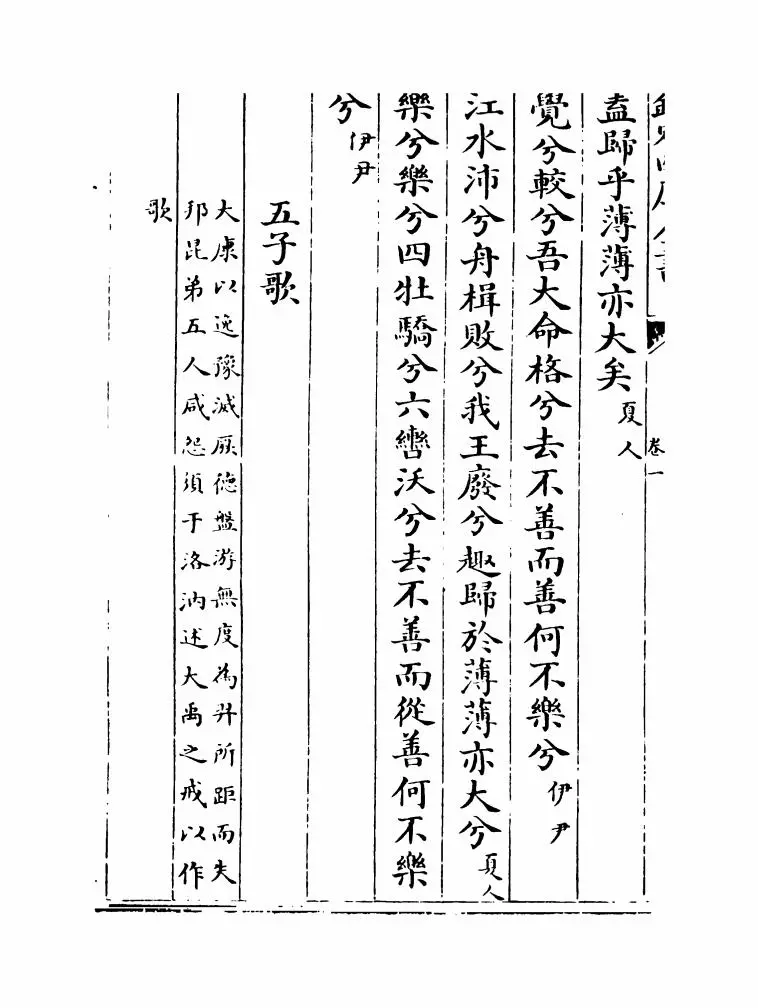 欽定四庫全書
卷一
盍歸乎薄薄亦大矣夏人
覺兮較兮吾大命格兮去不善而善何不樂兮伊尹
江水沛兮舟楫敗兮我王廢兮趣歸於薄薄亦大兮夏人
樂兮樂兮四牡驕兮六轡沃兮去不善而從善何不樂
兮伊尹
五子歌
大康以逸豫滅厥德盤游無度為羿所距而失
邦昆弟五人咸怨須于洛汭述大禹之戒以作
歌